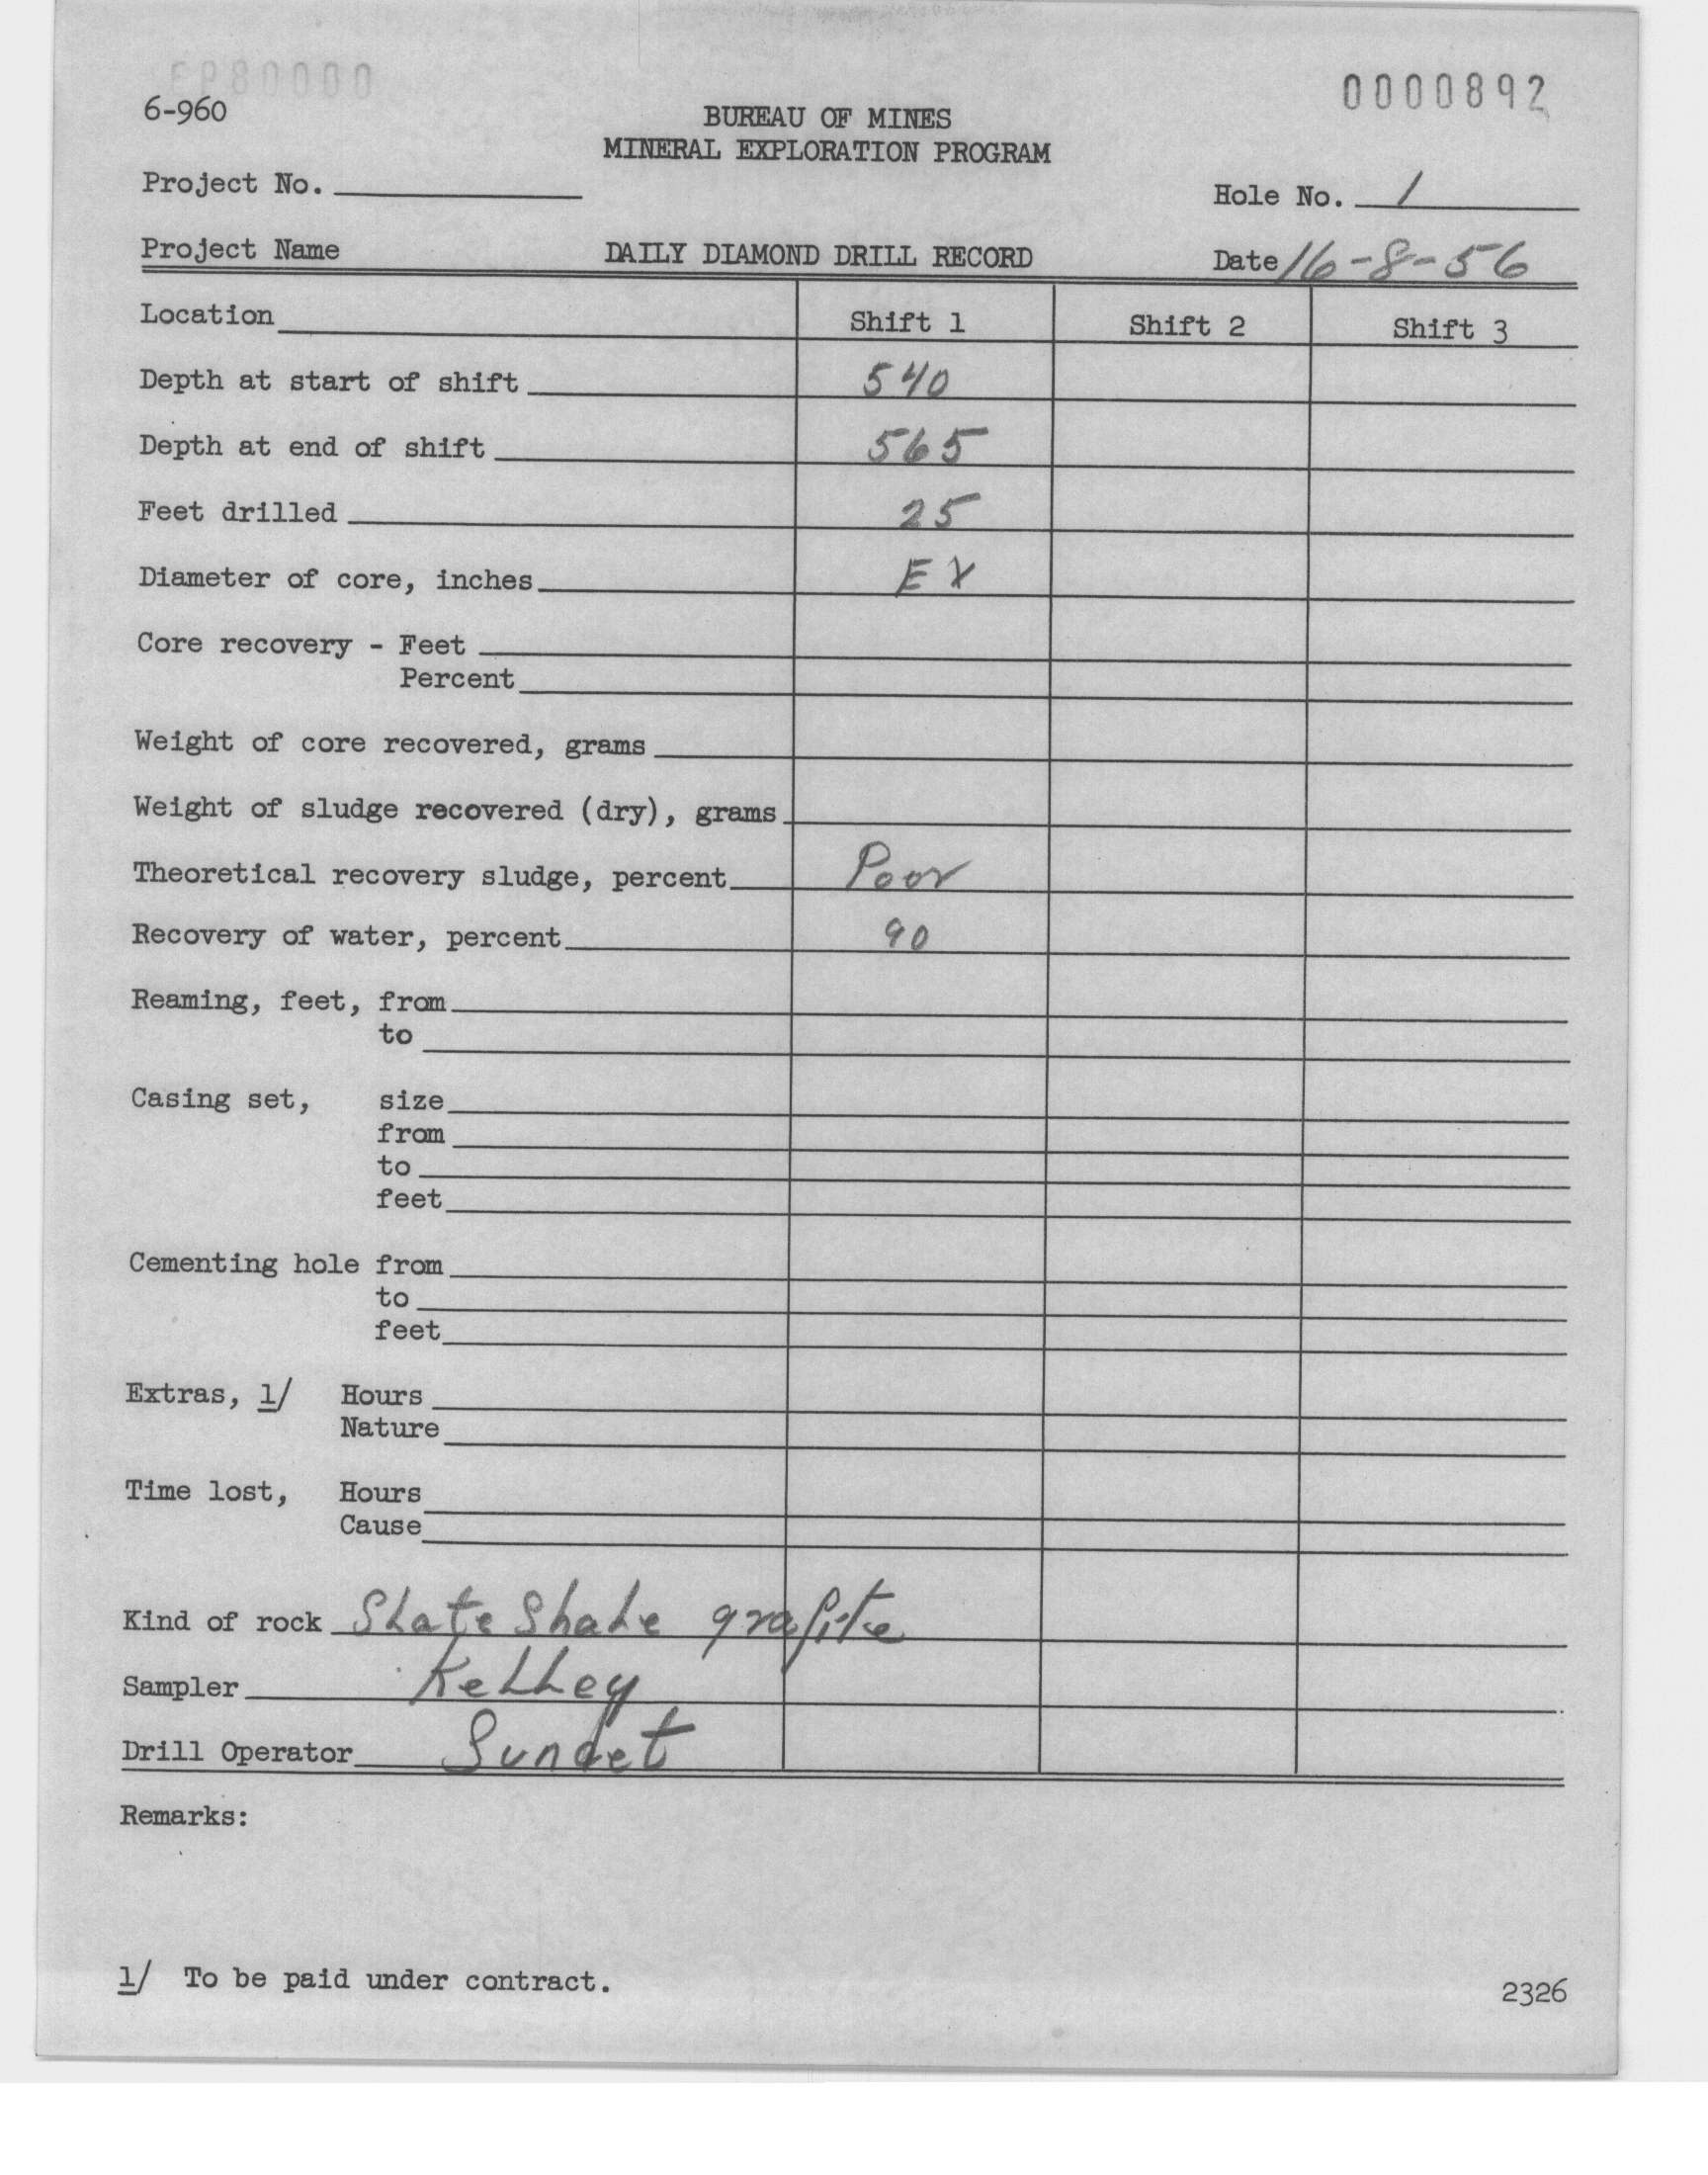 0000892
6-960
BUREAU OF MINES
MINERAL EXPLORATION PROGRAM
Project No.
Hole No. 1
Project Name DAILY DIAMOND DRILL RECORD Date 16-8-56
Location Shift 1 Shift 2 Shift 3
Depth at start of shift 540
Depth at end of shift 565
Feet drilled 25
Diameter of core, inches EX
Core recovery - Feet
Percent
Weight of core recovered, grams
Weight of sludge recovered (dry), grams
Theoretical recovery sludge, percent Poor
Recovery of water, percent 90
Reaming, feet, from
to
Casing set, size
from
to
feet
Cementing hole from
to
feet
Extras, 1/ Hours
Nature
Time lost, Hours
Cause
Kind of rock Slate Shale grafite
Sampler Kelley
Drill Operator
Remarks:
1/ To be paid under contract.
2326